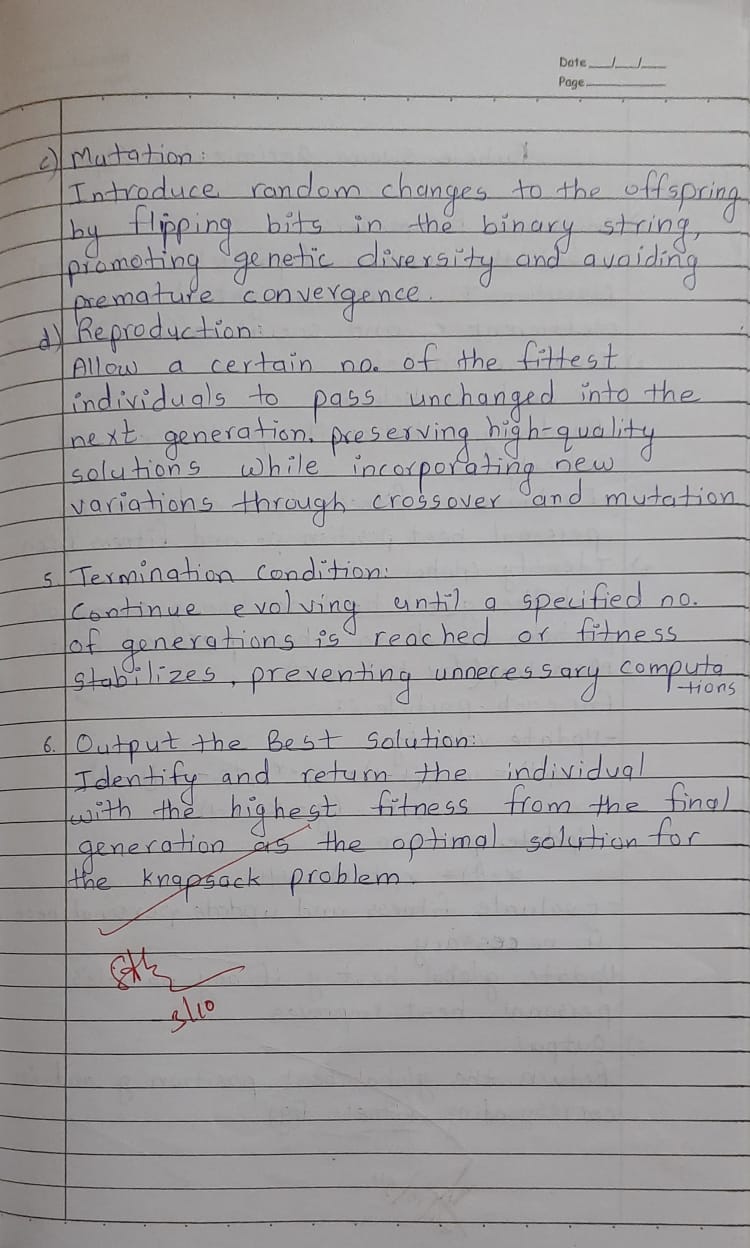 Date __/__/__
Page
c) Mutation:
Introduce random changes to the offspring
by flipping bits in the binary string,
promoting genetic diversity and avoiding
premature convergence.
d) Reproduction:
Allow a certain no. of the fittest
individuals to pass unchanged into the
next generation, preserving high-quality
solutions while incorporating new
variations through crossover and mutation
5. Termination Condition:
Continue evolving until a specified no.
of generations is reached or fitness
stabilizes, preventing unnecessary computa
tions
6. Output the Best Solution:
Identify and return the individual
with the highest fitness from the final
generation as the optimal solution for
the Knapsack problem.
3/10